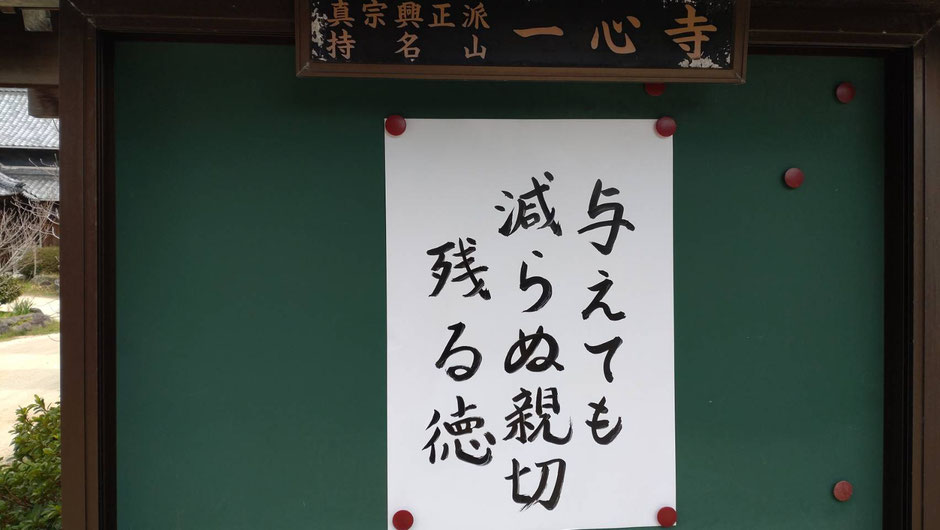 真宗興正派
持名山
一心寺
与えても
減らぬ親切
残る徳